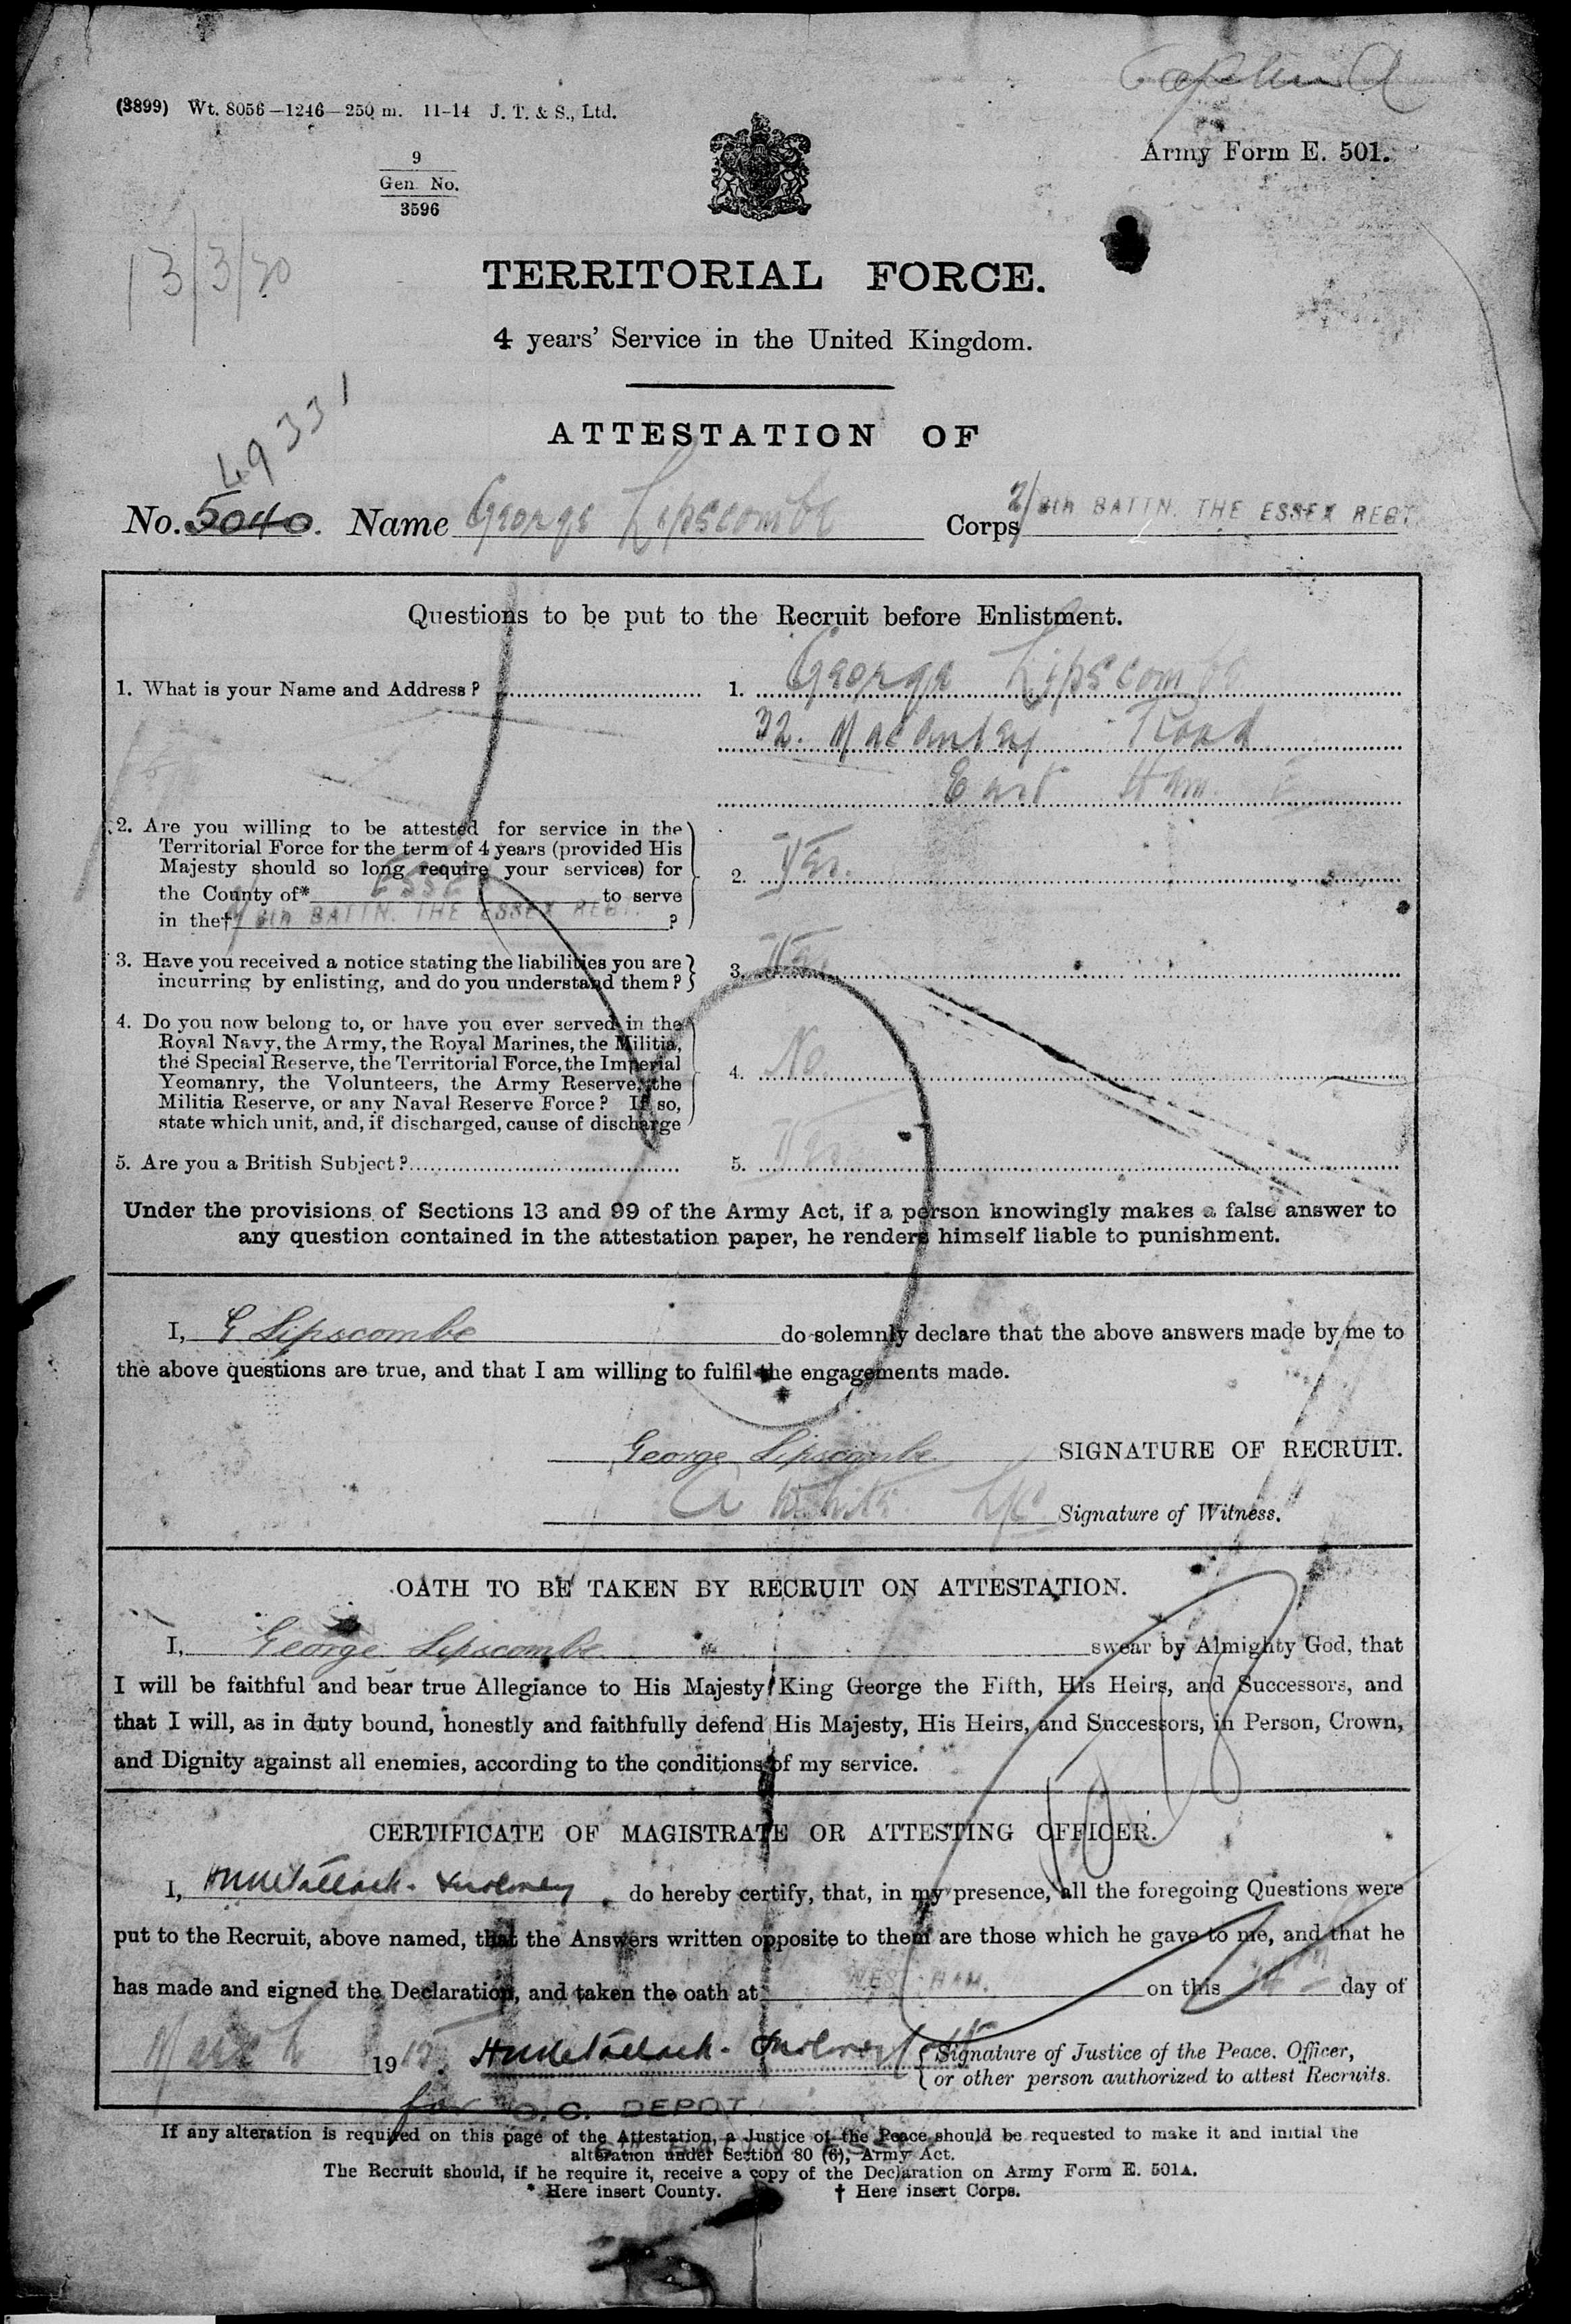 (3899) Wt. 8056—1246—250 m. 11-14 J. T. & S., Ltd.
Army Form E. 501.
9
Gen. No.
3596
13/3/20
TERRITORIAL FORCE.
4 years' Service in the United Kingdom.
ATTESTATION OF
49331
No. 5040. Name George Lipscombe Corps 2/6th BATTN. THE ESSEX REGT.
Questions to be put to the Recruit before Enlistment.
1. What is your Name and Address? 1. George Lipscombe
32. Macaulay Road
East Ham. E
2. Are you willing to be attested for service in the
Territorial Force for the term of 4 years (provided His
Majesty should so long require your services) for
the County of* ESSEX to serve
in the† 6th BATTN. THE ESSEX REGT. ? 2. Yes.
3. Have you received a notice stating the liabilities you are
incurring by enlisting, and do you understand them? 3. Yes.
4. Do you now belong to, or have you ever served in the
Royal Navy, the Army, the Royal Marines, the Militia,
the Special Reserve, the Territorial Force, the Imperial
Yeomanry, the Volunteers, the Army Reserve, the
Militia Reserve, or any Naval Reserve Force? If so,
state which unit, and, if discharged, cause of discharge 4. No.
5. Are you a British Subject? 5. Yes
Under the provisions of Sections 13 and 99 of the Army Act, if a person knowingly makes a false answer to
any question contained in the attestation paper, he renders himself liable to punishment.
I, G Lipscombe do solemnly declare that the above answers made by me to
the above questions are true, and that I am willing to fulfil the engagements made.
George Lipscombe SIGNATURE OF RECRUIT.
A White L/C Signature of Witness.
OATH TO BE TAKEN BY RECRUIT ON ATTESTATION.
I, George Lipscombe swear by Almighty God, that
I will be faithful and bear true Allegiance to His Majesty King George the Fifth, His Heirs, and Successors, and
that I will, as in duty bound, honestly and faithfully defend His Majesty, His Heirs, and Successors, in Person, Crown,
and Dignity against all enemies, according to the conditions of my service.
CERTIFICATE OF MAGISTRATE OR ATTESTING OFFICER.
I, do hereby certify, that, in my presence, all the foregoing Questions were
put to the Recruit, above named, that the Answers written opposite to them are those which he gave to me, and that he
has made and signed the Declaration, and taken the oath at WEST HAM. on this day of
March 1915. Signature of Justice of the Peace, Officer,
or other person authorized to attest Recruits.
for O.C. DEPOT.
If any alteration is required on this page of the Attestation, a Justice of the Peace should be requested to make it and initial the
alteration under Section 80 (6), Army Act.
The Recruit should, if he require it, receive a copy of the Declaration on Army Form E. 501A.
* Here insert County. † Here insert Corps.